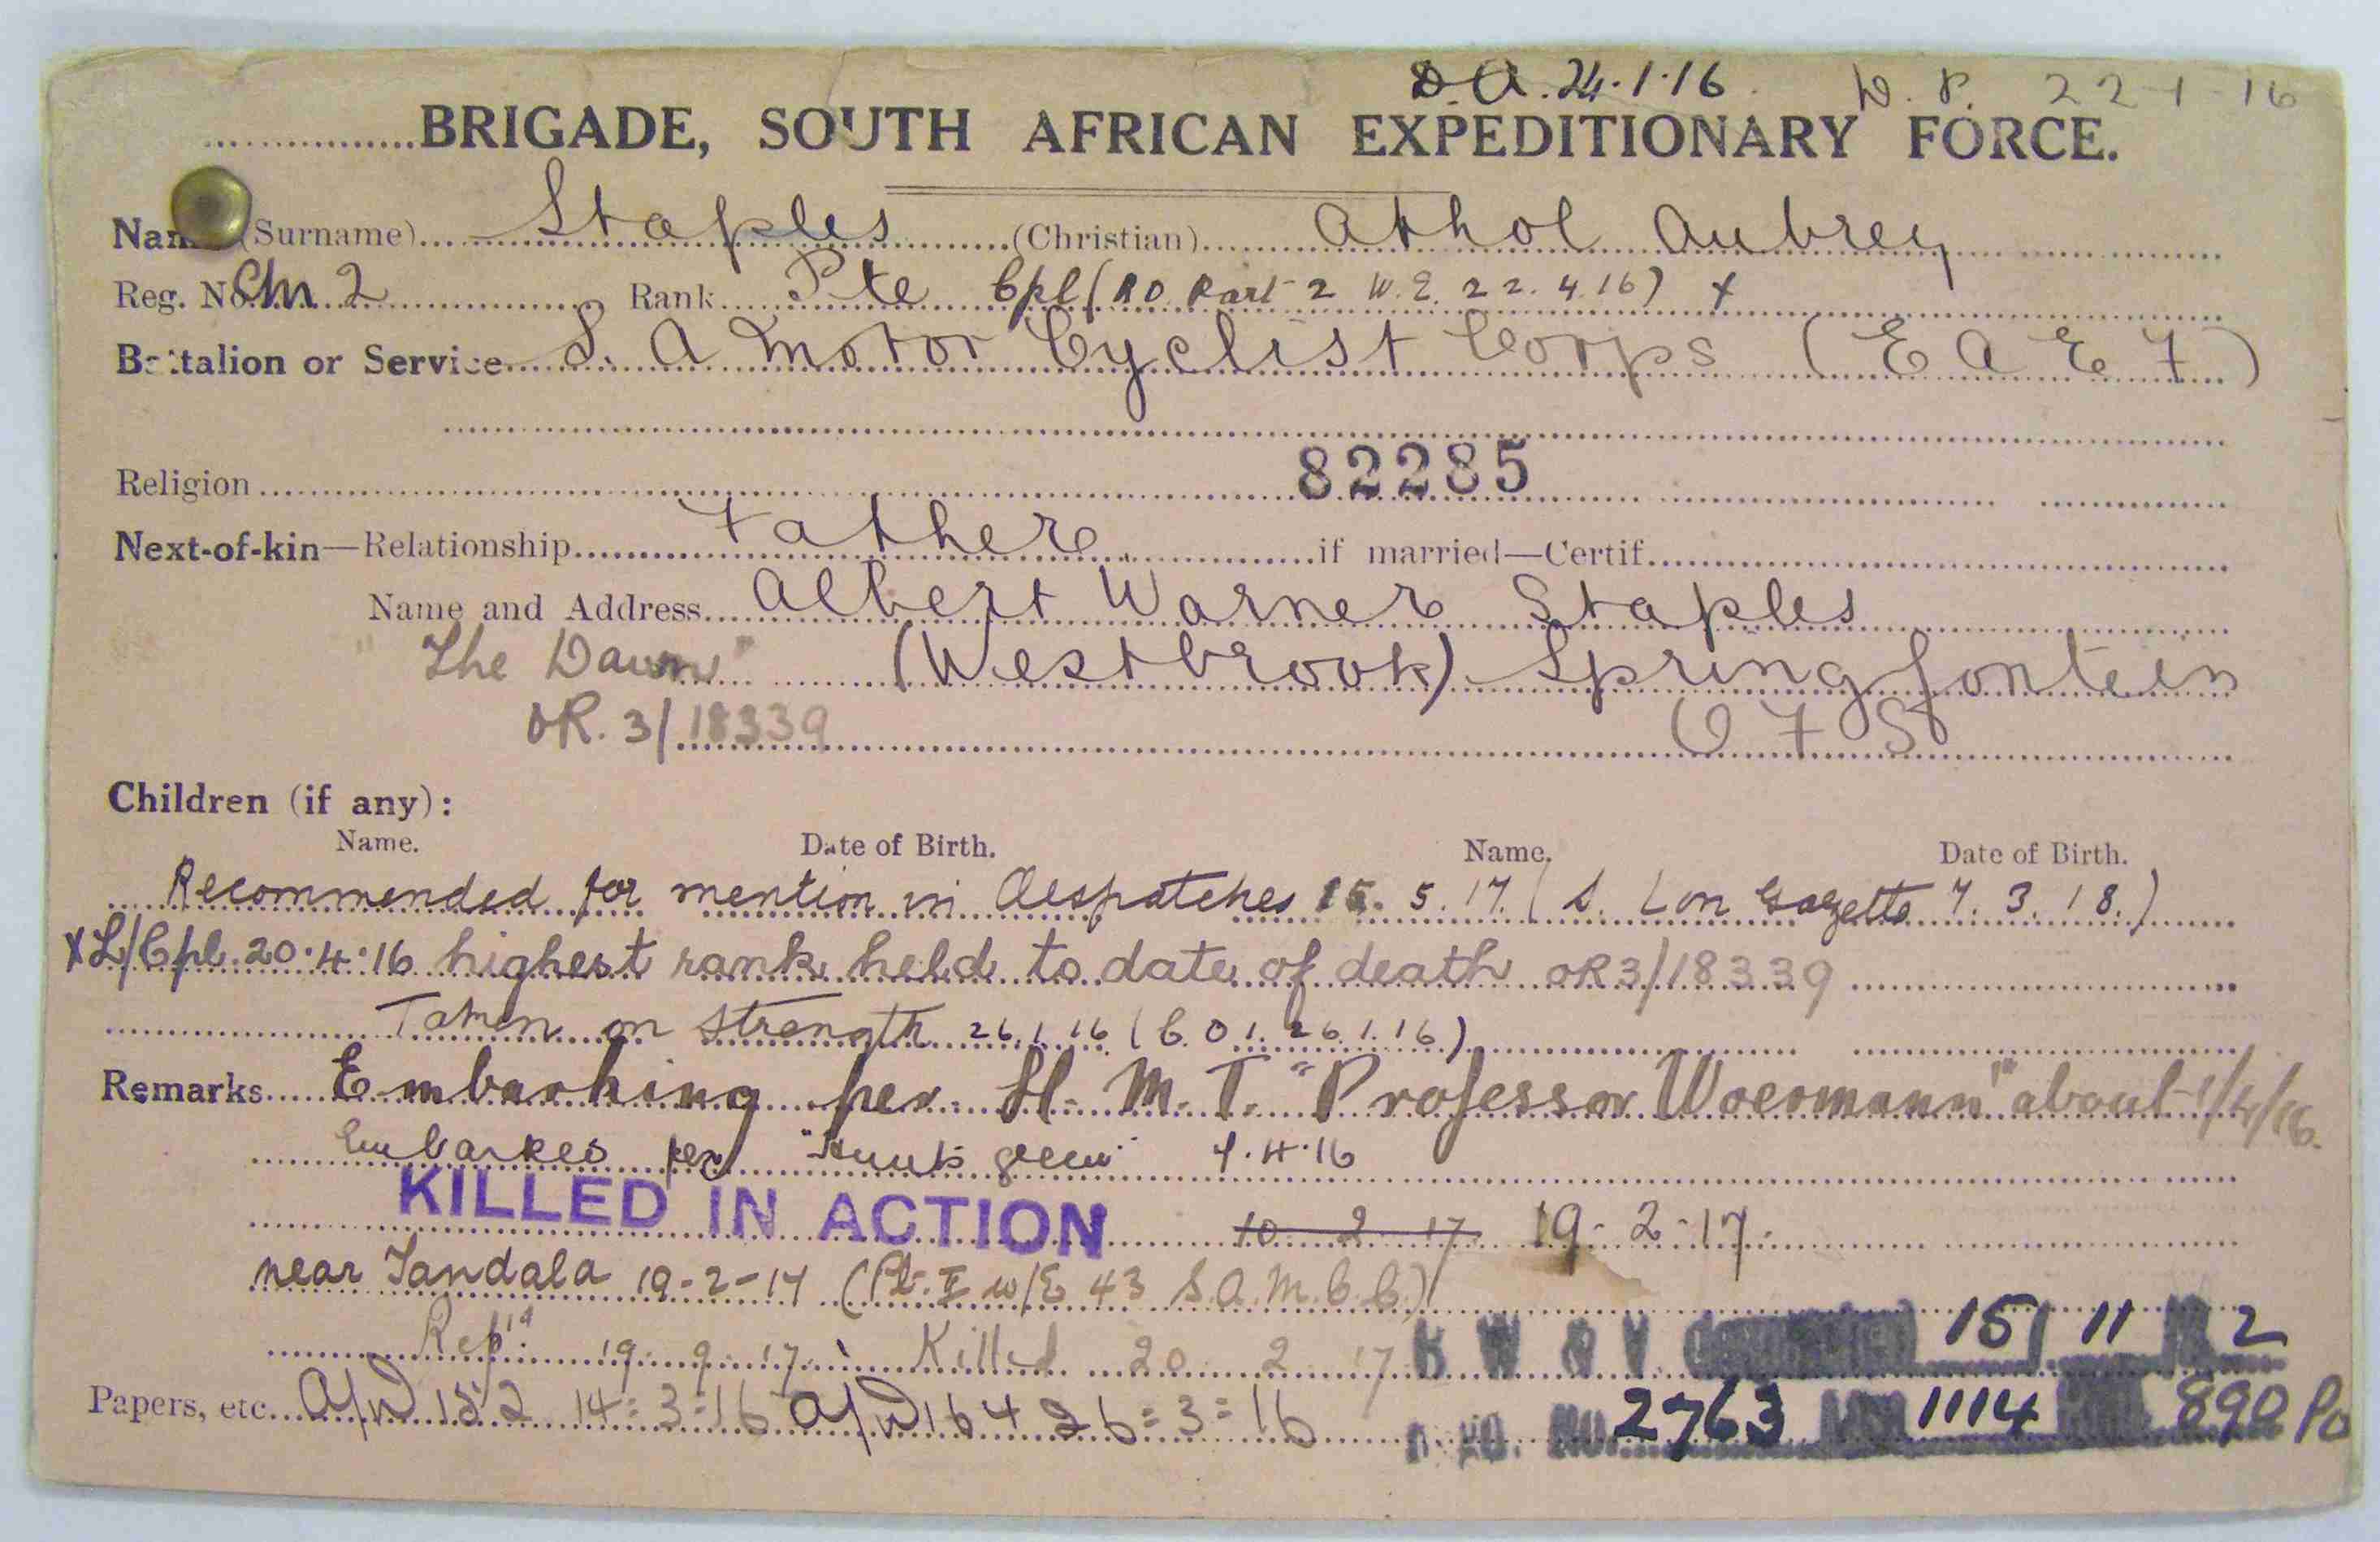 D.A. 24.1.16. W.P. 22-1-16
BRIGADE, SOUTH AFRICAN EXPEDITIONARY FORCE.
Name (Surname) Staples (Christian) Athol Aubrey
Reg. No. Cm 2 Rank Pte Cpl (RO Part 2 W.E. 22.4.16) x
Battalion or Service S. A Motor Cyclist Corps (E A E F)
Religion 82285
Next-of-kin—Relationship Father if married—Certif.
Name and Address Albert Warner Staples
"The Dawn" (Westbrook) Springfontein
OR. 3/18339 O F S
Children (if any):
Name. Date of Birth. Name. Date of Birth.
Recommended for mention in despatches 15. 5. 17. (S. Lon Gazette 7. 3. 18.)
x L/Cpl. 20.4.16 highest rank held to date of death OR3/18339
Taken on strength 26.1.16 (C.O 1. 26.1.16)
Remarks Embarking per H.M.T. "Professor Woermann" about 1/4/16.
Embarked per "Huntsgreen" 9.4.16
KILLED IN ACTION 10 2 17 19-2-17.
near Tandala 19-2-17 (Pt. II W/E 43 S.A.M.C.C.)
Rep'd 19. 9. 17. Killed 20. 2. 17 15/11 2
Papers, etc. A/W 152 14=3=16 A/W 164 26=3=16 2763 1114 890 Po